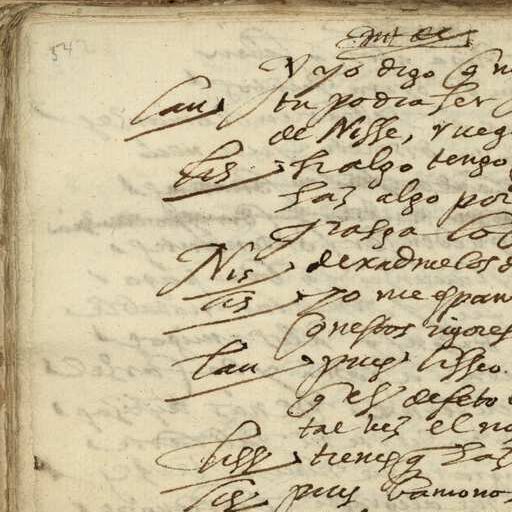 54
y yo digo q n
lau tu podra ser
de Nisse, rueg
lis si algo tengo
haz algo por
Nis dexadmelos
lis yo me espan
q nestos rigores
lau pues lisseo.
q es defeto
tal vez el no
liss tienes q haz
lis pues bamonos